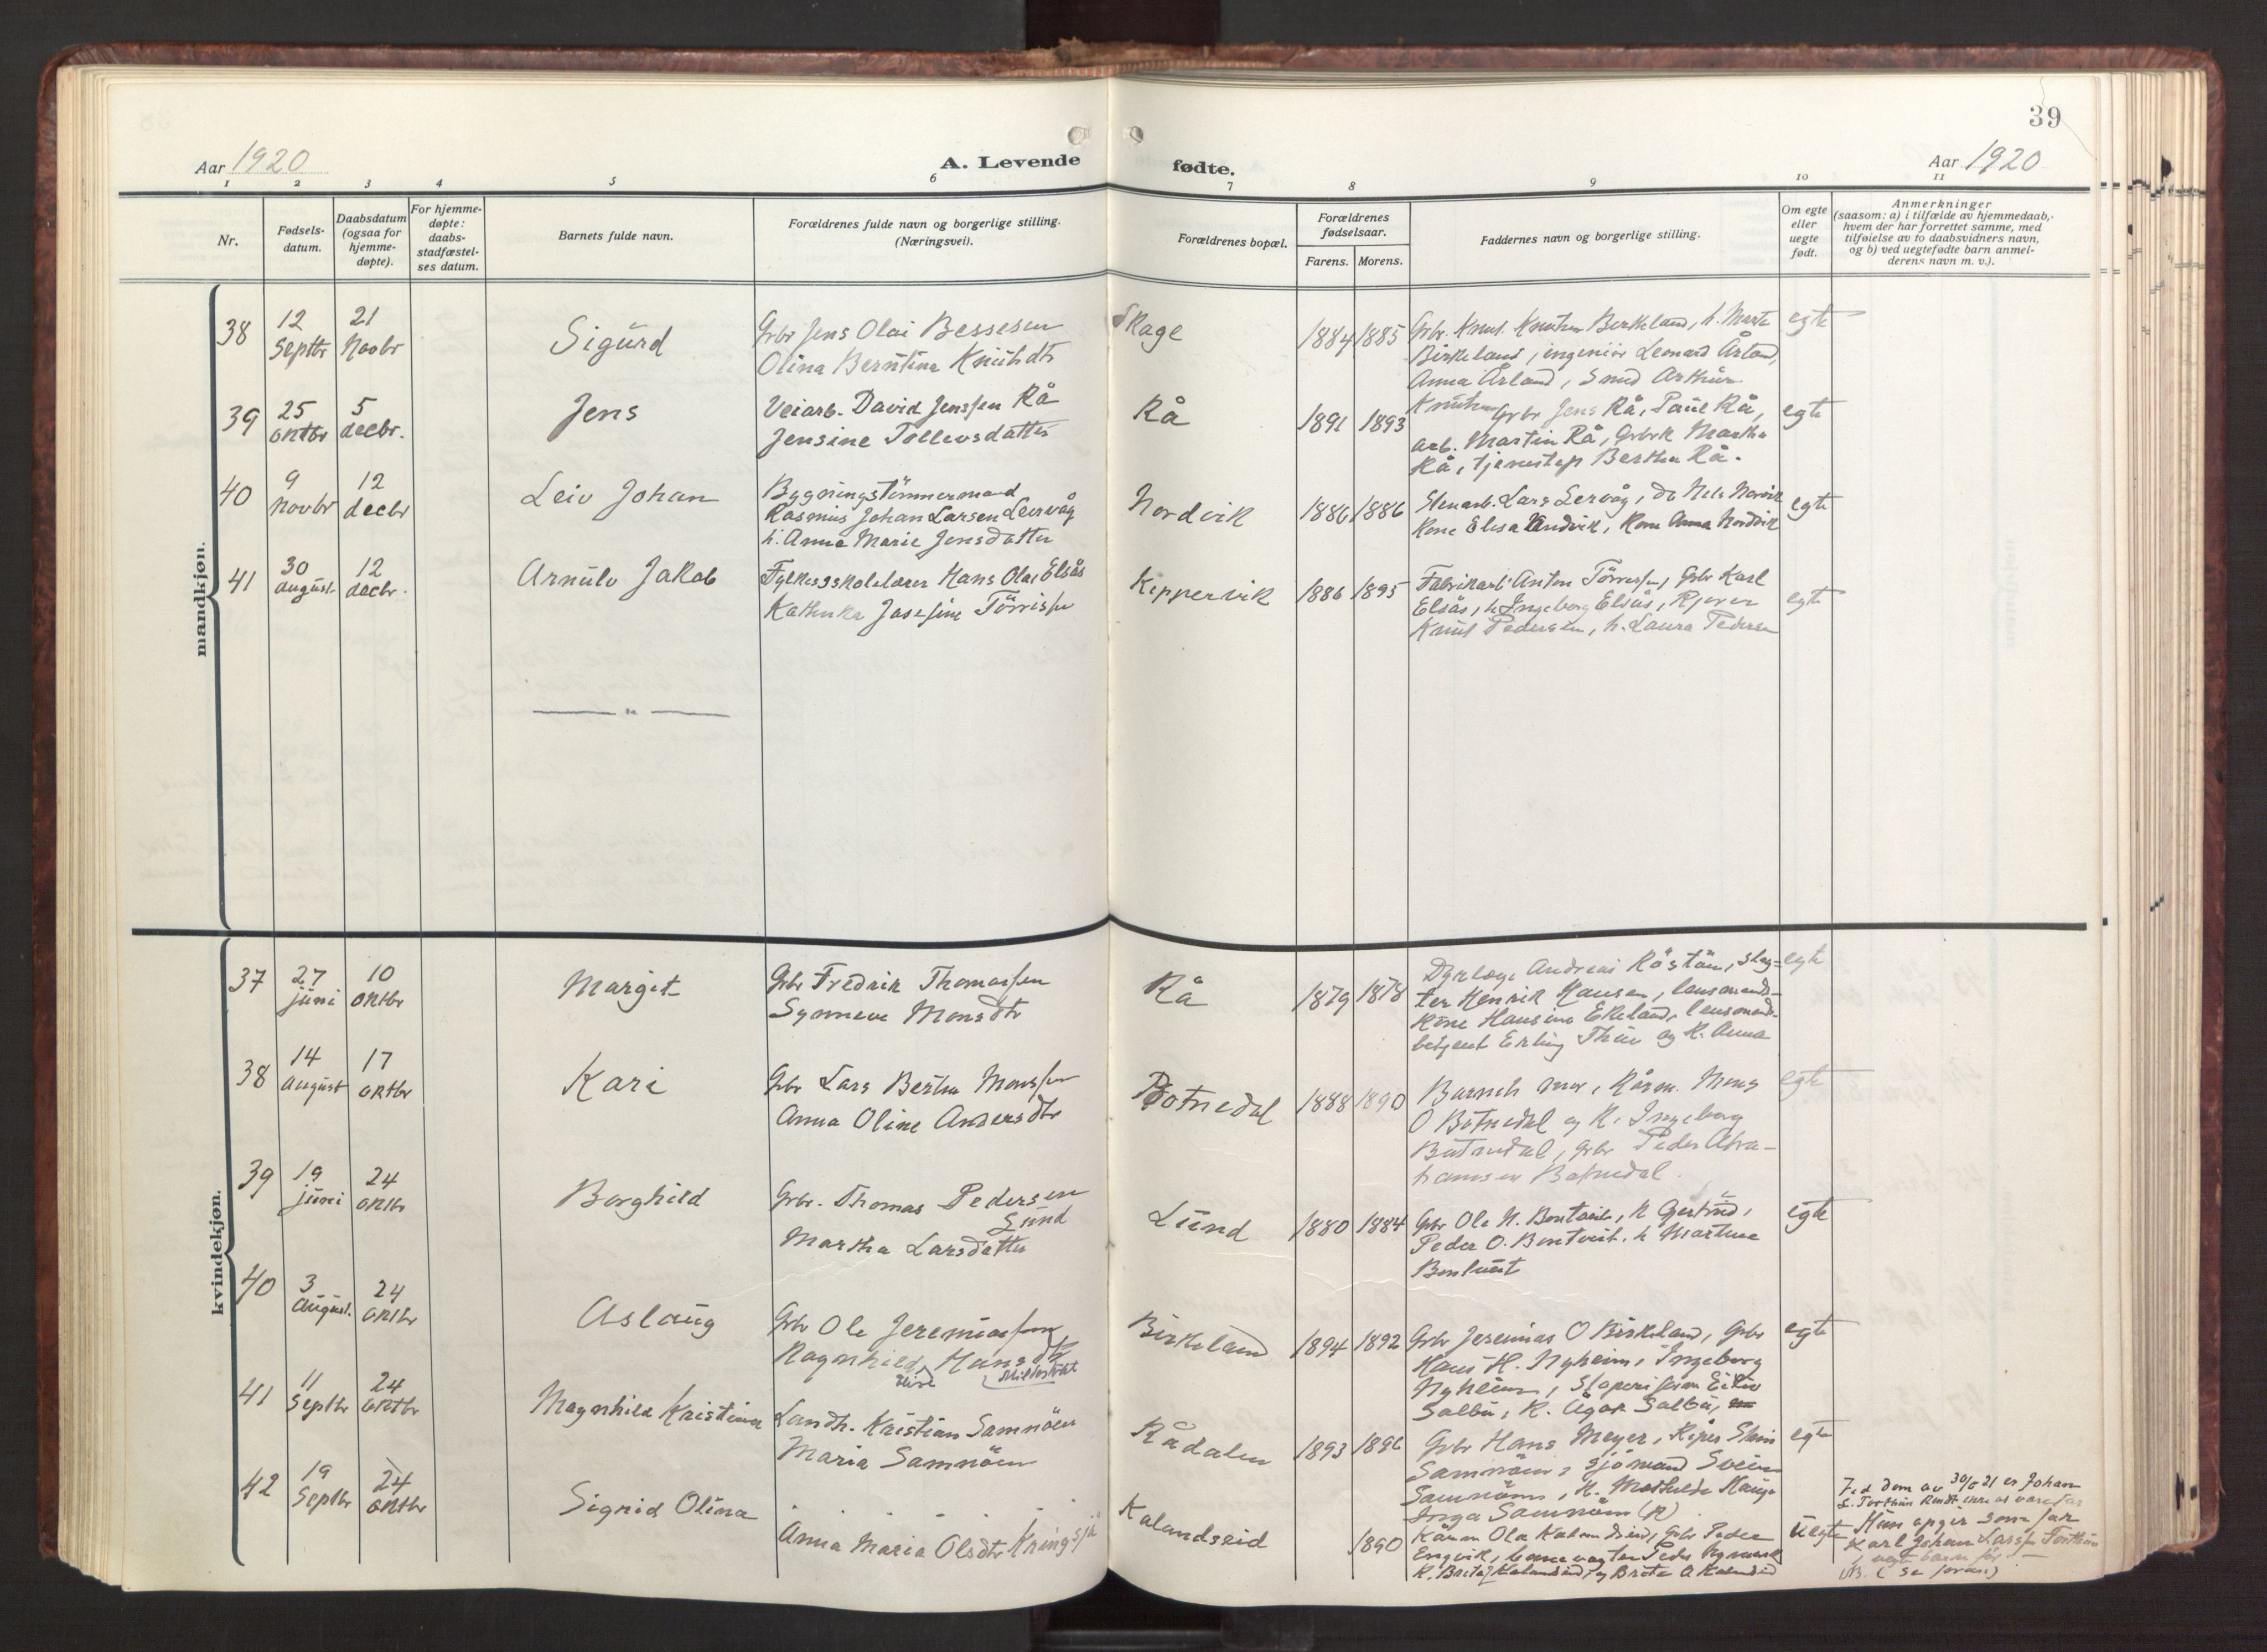 39
Aar 1920
A. Levende
fødte.
Aar 1920
1 2 3 4 5 6 7 8 9 10 11
Nr.
Fødsels-
datum.
Daabsdatum
(ogsaa for
hjemme-
døpte).
For hjemme-
døpte:
daabs-
stadfæstel-
ses datum.
Barnets fulde navn.
Forældrenes fulde navn og borgerlige stilling.
(Næringsvei).
Forældrenes bopæl.
Forældrenes
fødselsaar.
Farens. Morens.
Faddernes navn og borgerlige stilling.
Om egte
eller
uegte
født.
Anmerkninger
(saasom: a) i tilfælde av hjemmedaab,
hvem der har forrettet samme, med
tilføielse av to daabsvidners navn,
og b) ved uegtefødte barn anmel-
derens navn m. v.).
mandkjøn.
38
12
Septbr
21
Novbr
Sigurd
Grbr Jens Olai Bessesen
Olina Berntina Knutsdtr
Skage
1884 1885
Grbr. Knut Knutsen Birkeland, h. Marta
Birkeland, ingeniør Leonard Årland,
Anna Årland, Smed Arthur
Knutsen
egte
39
25
oktbr
5
decbr.
Jens
Veiarb. David Jenssen Rå
Jensine Tollevsdatter
Rå
1891 1893
Grbr Jens Rå, Paul Rå,
arb. Martin Rå, Grbrk Martha
Rå, tjenestep Bertha Rå.
egte
40
9
Novbr
12
decbr
Leiv Johan
Bygningstömmermand
Rasmus Johan Larsen Leirvåg
h. Anna Marie Jensdatter
Nordvik
1886 1886
Stenarb. Lars Lervåg, do Nels Norvik
Kone Elisa Nordvik, Kone Anna Nordvik
egte
41
30
august
12
decbr.
Arnulv Jakob
Fylkesskolelærer Hans Olai Elsås
Kathinka Josefine Törrissen
Kippervik
1886 1895
Fabrikarb Anton Törrissen, Grbr Karl
Elsås, h Ingeborg Elsås, Kjører
Knut Pedersen, h. Laura Pedersen
egte
— " —
kvindekjøn.
37
27
juni
10
oktbr
Margit
Grbr Fredrik Thomassen
Synneve Monsdtr
Rå
1879 1878
Dyrlæge Andreas Röstön, slag-
ter Henrik Hansen, lensmands-
kone Hansine Ekeland, lensmands-
betjent Erling Thun og K. Anna
egte
38
14
august
17
oktbr
Kari
Grbr Lars Bertin Monssen
Anna Oline Andersdtr
Botnedal
1888 1890
Barnets mor, Kårm. Mons
O Botnedal og K. Ingeborg
Botnedal, grbr Peder Abra-
hamsen Botnedal.
egte
39
19
juni
24
oktbr
Borghild
Grbr. Thomas Pedersen
Lund
Martha Larsdatter
Lund
1880 1884
Grbr Ole N. Bontveit, K Gjertrud,
Peder O. Bontveit, h Martine
Bontveit
egte
40
3
august.
24
oktbr
Aslaug
Grbr Ole Jeremiassen
Ragnhild Hansdtr
Birkeland
1894 1892
Grbr Jeremias O Birkeland, Grbr
Hans H. Nyheim, Ingeborg
Nyheim,
Salbu, K. Ågot Salbu,
egte
41
11
Septbr
24
oktbr
Magnhild Kristina
Landh. Kristian Samnöen
Maria Samnöen
Rådalen
1893 1896
Grbr Hans Meyer,
Samnöen, sjömand Svein
Samnöen, K. Mathilde Hauge
Inga Samnöen (K)
egte
42
19
Septbr
24
oktbr
Sigrid Olina
Anna Maria Olsdtr Kringsjå
Kalandseid
1890
Kårm Ola Kalandseid, Grbr Peder
Engevik, banevogter Peder
K. Brita Kalandseid, og Brita A Kalandseid
Uegte
Ved dom av 30/6 21 er Johan
L. kendt ikke at være far
Hun opgir som far
Karl Johan Larssen
NB. (se foran)